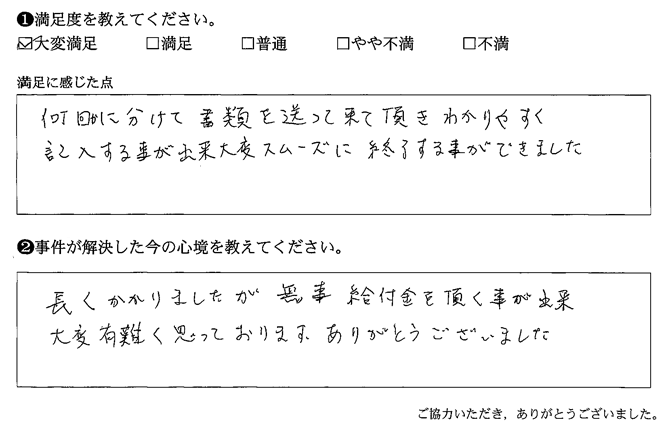 ❶満足度を教えてください。
☑大変満足 □満足 □普通 □やや不満 □不満
満足に感じた点
何回かに分けて書類を送って来て頂きわかりやすく
記入する事が出来大変スムーズに終了する事ができました
❷事件が解決した今の心境を教えてください。
長くかかりましたが無事給付金を頂く事が出来
大変有難く思っております。ありがとうございました
ご協力いただき、ありがとうございました。